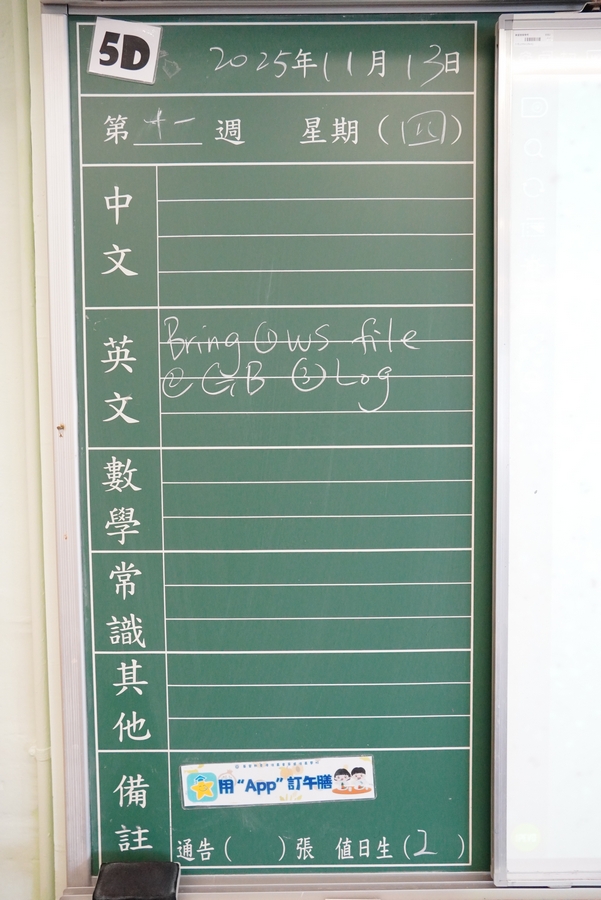 5D
2025年11月13日
第十一週 星期(四)
中文
英文
Bring ① WS file
② GB ③ Log
數學
常識
其他
備註
用“App”訂午膳
通告( )張 值日生(2)